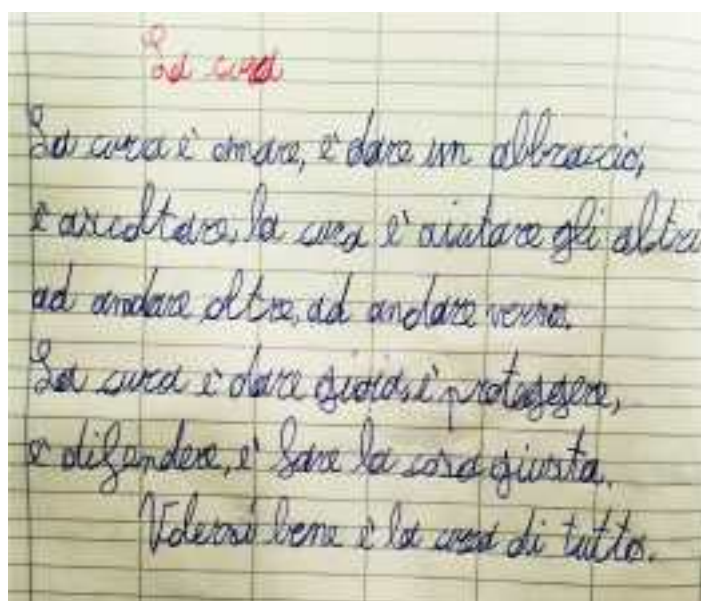 La cura
La cura è amare, è dare un abbraccio,
è ascoltare, la cura è aiutare gli altri
ad andare oltre, ad andare verso.
La cura è dare gioia, è proteggere,
è difendere, è fare la cosa giusta.
Volersi bene è la cura di tutto.